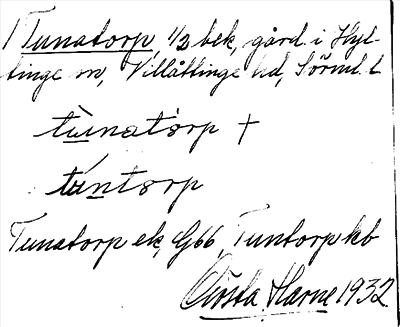 1 Tunatorp, 1/2 bek, gård i Hyl-
tinge sn, Villåttinge hd, Sörml. l.
tu̲natòrp +
tu̲ntorp
Tunatorp ek, G66, Tuntorp kb
Gösta Harne 1932